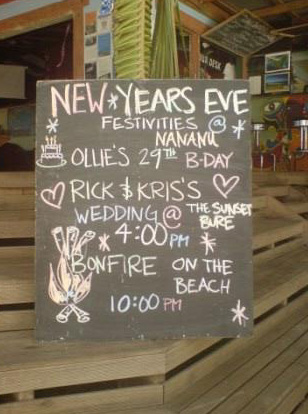 NEW * YEARS EVE
FESTIVITIES @
NANANU
OLLIE'S 29TH B-DAY
RICK & KRIS'S
WEDDING @ THE SUNSET
BURE
4:00 PM
BONFIRE ON THE
BEACH
10:00 PM